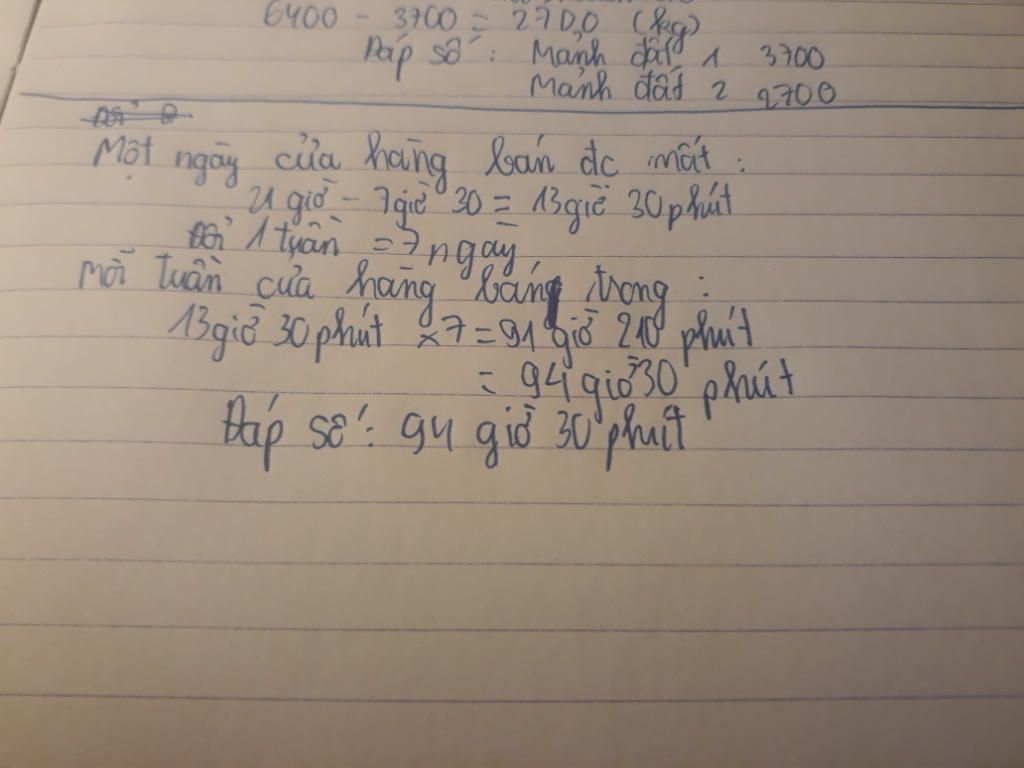 6400 - 3700 = 2700 (kg)
Đáp số: Mảnh đất 1 3700
Mảnh đất 2 2700
Một ngày cửa hàng bán đc mất:
21 giờ - 7 giờ 30 = 13 giờ 30 phút
1 tuần = 7 ngày
Mỗi tuần cửa hàng bán trong:
13 giờ 30 phút x 7 = 91 giờ 210 phút
= 94 giờ 30 phút
Đáp số: 94 giờ 30 phút